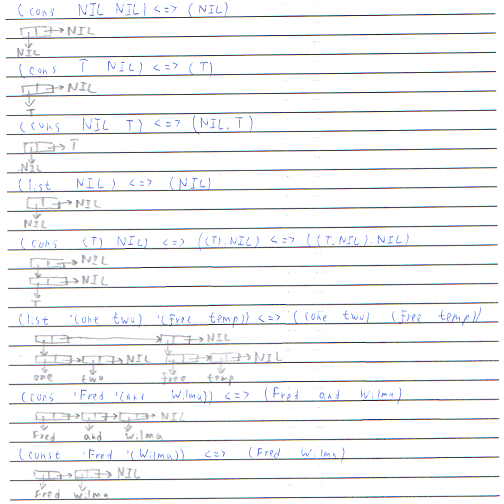 (cons NIL NIL) <=> (NIL)
NIL
NIL
(cons T NIL) <=> (T)
NIL
T
(cons NIL T) <=> (NIL . T)
T
NIL
(list NIL) <=> (NIL)
NIL
NIL
(cons (T) NIL) <=> ((T) . NIL) <=> ((T . NIL) . NIL)
NIL
NIL
T
(list '(one two) '(free temp)) <=> ((one two) (free temp))
NIL
NIL NIL
one two temp
(cons 'Fred '(and Wilma)) <=> (Fred and Wilma)
NIL
Fred and Wilma
(const 'Fred '(Wilma)) <=> (Fred Wilma)
NIL
Fred Wilma